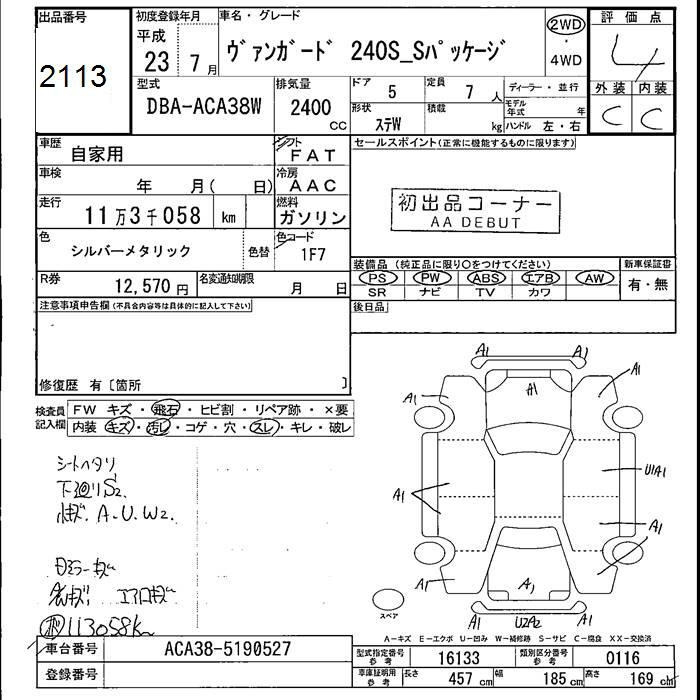 出品番号
2113
初度登録年月
平成
23 7月
車名・グレード
ヴァンガード 240S_Sパッケージ
2WD
・
4WD
評価点
4
外装 内装
C C
型式
DBA-ACA38W
排気量
2400
CC
ドア 5
定員 7 人
ディーラー・並行
形状 ステW
積載 kg
モデル年式 年
ハンドル 左・右
車歴 自家用
シフト FAT
車検 年 月( 日)
冷房 AAC
走行 11万3千058 km
燃料 ガソリン
色 シルバーメタリック
色替
色コード 1F7
R券 12,570円
名変通知期限 月 日
セールスポイント(正常に機能するものに限ります)
初出品コーナー
AA DEBUT
装備品(純正品に限り○をつけてください)
新車保証書
PS PW ABS エアB AW
SR ナビ TV カワ
有・無
後日品
注意事項申告欄(不具合内容等は具体的に記入して下さい)
修復歴 有〔箇所 〕
検査員記入欄
FW キズ・飛石・ヒビ割・リペア跡・×要
内装 キズ・汚レ・コゲ・穴・スレ・キレ・破レ
シートヘタリ
下廻りS2
小キズ A-U.W2.
113058K
A1 A1
A1 A1 A1
A1 U1A1
A1
A1 A1 A1
U2A2
スペア
A-キズ E-エクボ U-凹み W-補修跡 S-サビ C-腐食 XX-交換済
車台番号 ACA38-5190527
登録番号
型式指定番号 参考 16133
類別区分番号 参考 0116
車庫証明用 参考 長さ 457 cm 幅 185 cm 高さ 169 cm